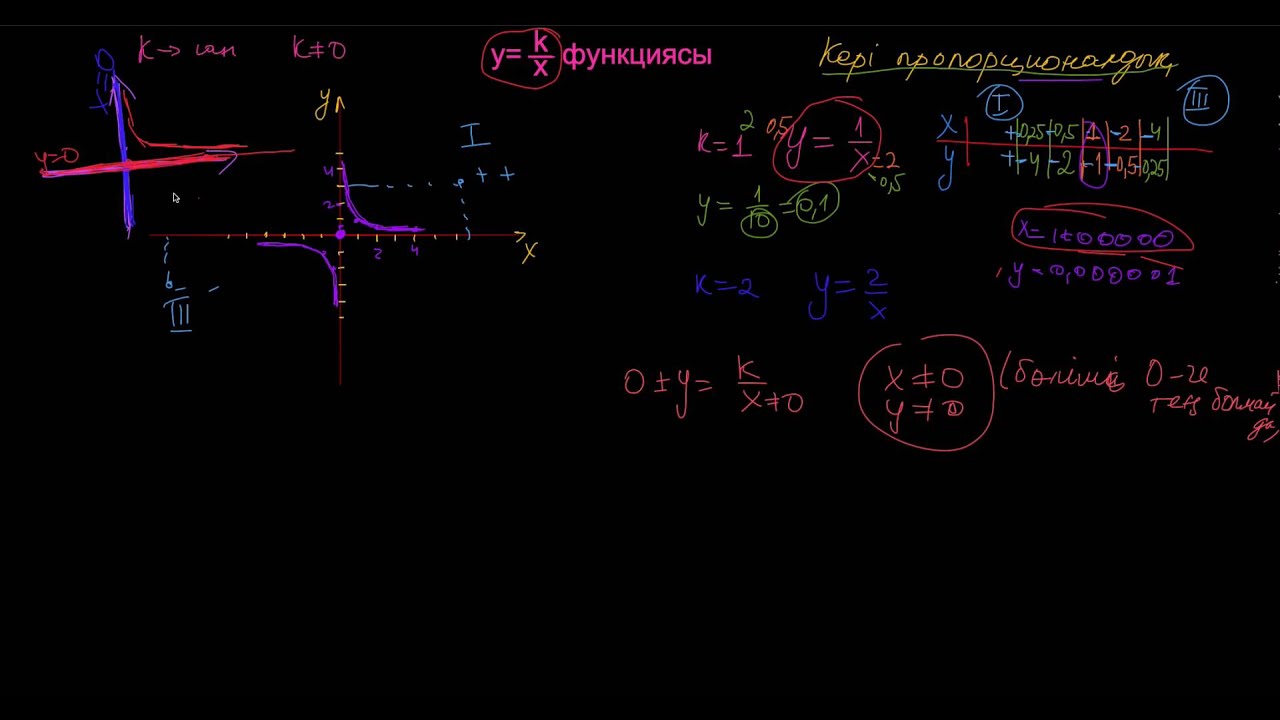 K → сан K ≠ 0
y = k/x функциясы
Кері пропорционалдық
x = 0
y = 0
y
x
4
2
2
4
I
+ +
III
- -
K = 1
2
0,5
y = 1/x
= 2
0,5
y = 1/10 = 0,1
K = 2 y = 2/x
I III
x + 0,25 -0,5 -1 -2 -4
y + -4 -2 -1 -0,5 -0,25
x = 1000000
y = 0,000001
0 ≠ y = K/x ≠ 0
x ≠ 0
y ≠ 0
0-ге
тең болмай
ды)